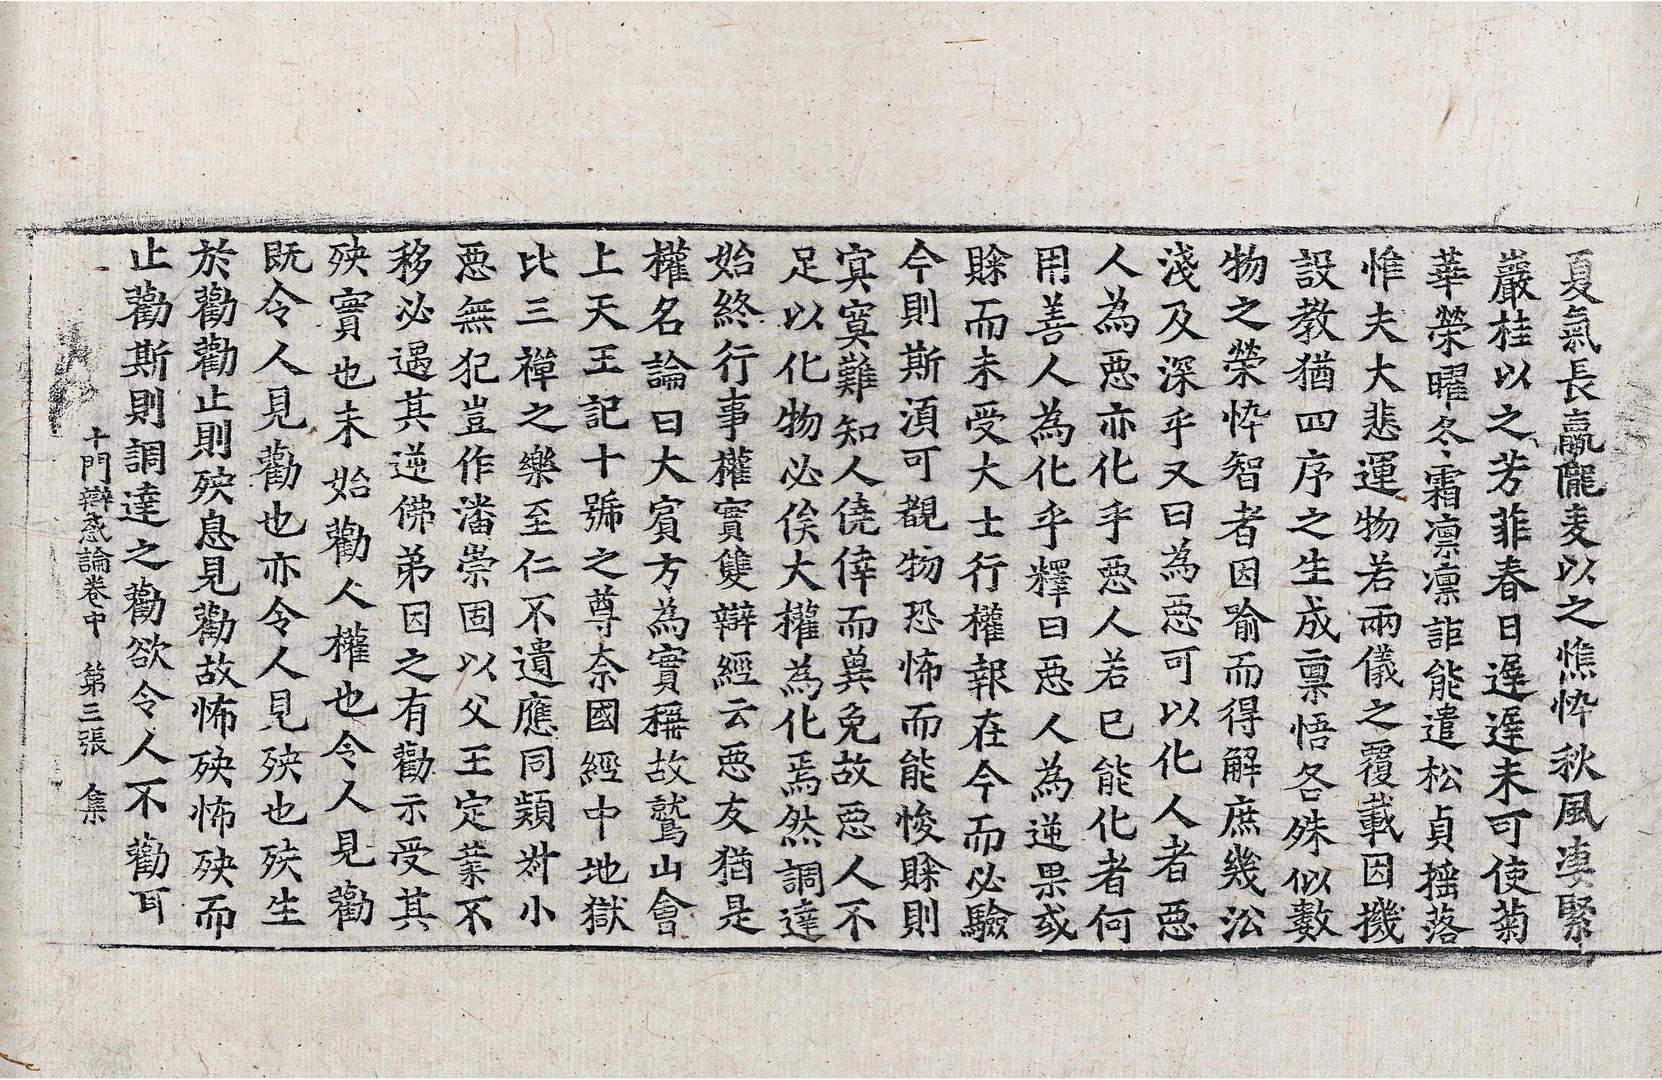 夏氣長羸蘢麦以之憔悴秋風凄緊
巖桂以之芳菲春日遲遲未可使菊
華榮曜冬霜凛凛詎能遣松貞揺落
惟夫大悲運物若兩儀之覆載因機
設教猶四序之生成稟悟各殊似數
物之榮悴智者因喻而得解庶幾㳂
淺及深乎又曰為惡可以化人者惡
人為惡亦化乎惡人若已能化者何
用善人為化乎釋曰惡人為逆果或
賖而未受大士行權報在今而必驗
今則斯湏可觀物恐怖而能悛賖則
寘寞難知人僥倖而異免故惡人不
足以化物必俟大權為化焉然調達
始終行事權實雙辯經云惡友猶是
權名論曰大賓方為實稱故鷲山會
上天王記十號之尊奈國經中地獄
比三禪之樂至仁不遺應同類对小
惡無犯豈作潘崇固以父王定業不
移必遇其逆佛弟因之有勸示受其
殃實也未始勸人權也令人見勸
既令人見勸也亦令人見殃也殃生
於勸勸止則殃息見勸故怖殃怖殃而
止勸斯則調達之勸欲令人不勸耳
十門辯惑論卷中　第三張　集